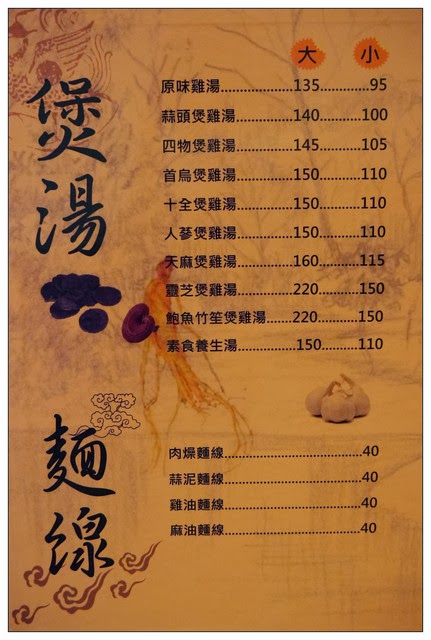 煲湯
大 小
原味雞湯......................135...............95
蒜頭煲雞湯..................140.............100
四物煲雞湯..................145.............105
首烏煲雞湯..................150.............110
十全煲雞湯..................150.............110
人蔘煲雞湯..................150.............110
天麻煲雞湯..................160.............115
靈芝煲雞湯..................220.............150
鮑魚竹笙煲雞湯........220.............150
素食養生湯..................150...........110
麵線
肉燥麵線..........................................40
蒜泥麵線..........................................40
雞油麵線..........................................40
麻油麵線..........................................40